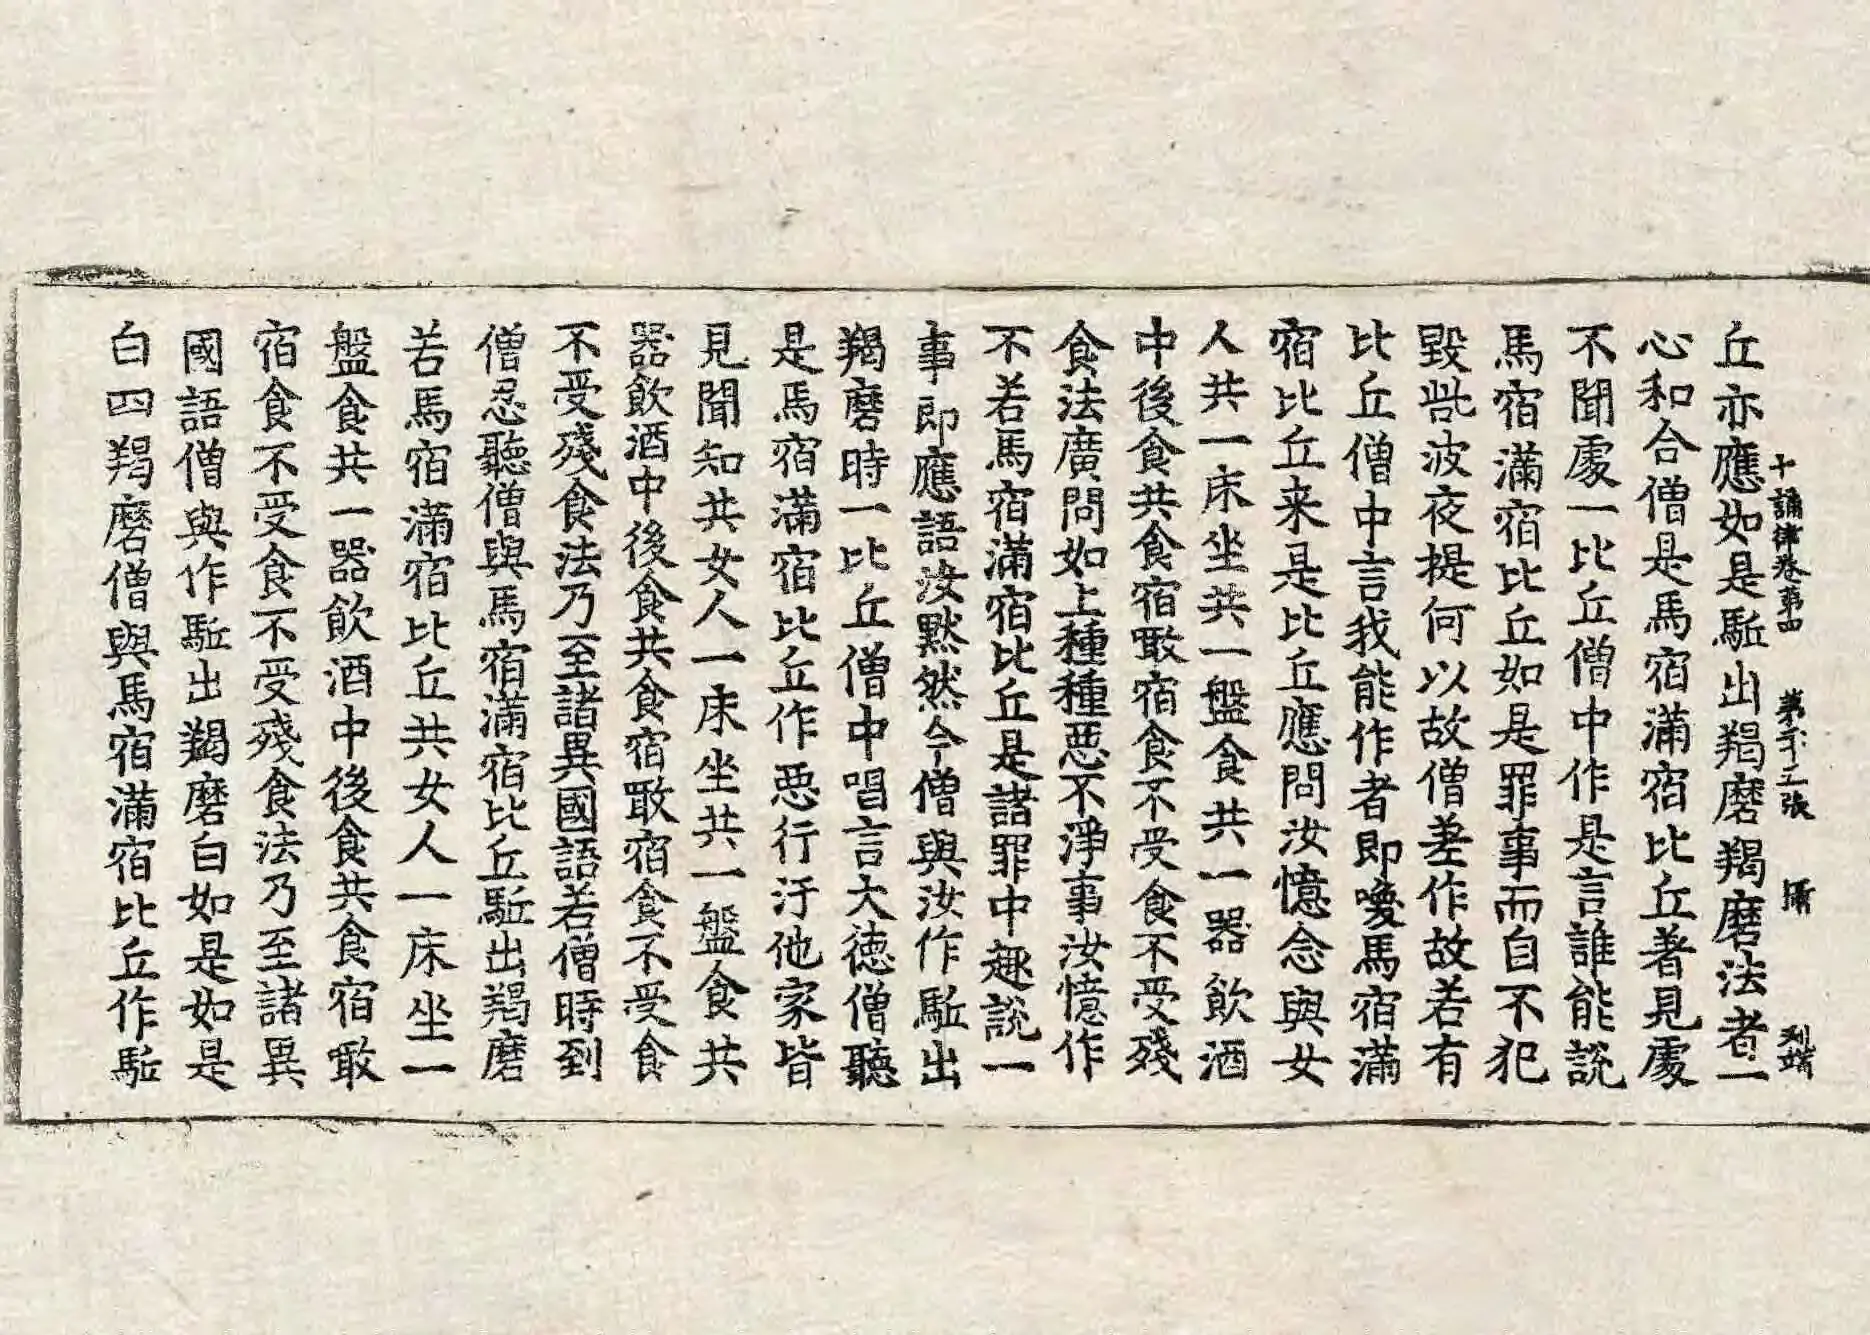 十誦律卷第四 第二十三張
丘亦應如是駈出羯磨羯磨法者一
心和合僧是馬宿滿宿比丘著見處
不聞處一比丘僧中作是言誰能說
馬宿滿宿比丘如是罪事而自不犯
毀呰波夜提何以故僧差作故若有
比丘僧中言我能作者即喚馬宿滿
宿比丘来是比丘應問汝憶念與女
人共一床坐共一盤食共一器飲酒
中後食共食宿噉宿食不受食不受殘
食法廣問如上種種惡不淨事汝憶作
不若馬宿滿宿比丘是諸罪中趣說一
事即應語汝默然今僧與汝作駈出
羯磨時一比丘僧中唱言大德僧聽
是馬宿滿宿比丘作惡行汙他家皆
見聞知共女人一床坐共一盤食共
器飲酒中後食共食宿噉宿食不受食
不受殘食法乃至諸異國語若僧時到
僧忍聽僧與馬宿滿宿比丘駈出羯磨
若馬宿滿宿比丘共女人一床坐一
盤食共一器飲酒中後食共食宿噉
宿食不受食不受殘食法乃至諸異
國語僧與作駈出羯磨白如是如是
白四羯磨僧與馬宿滿宿比丘作駈